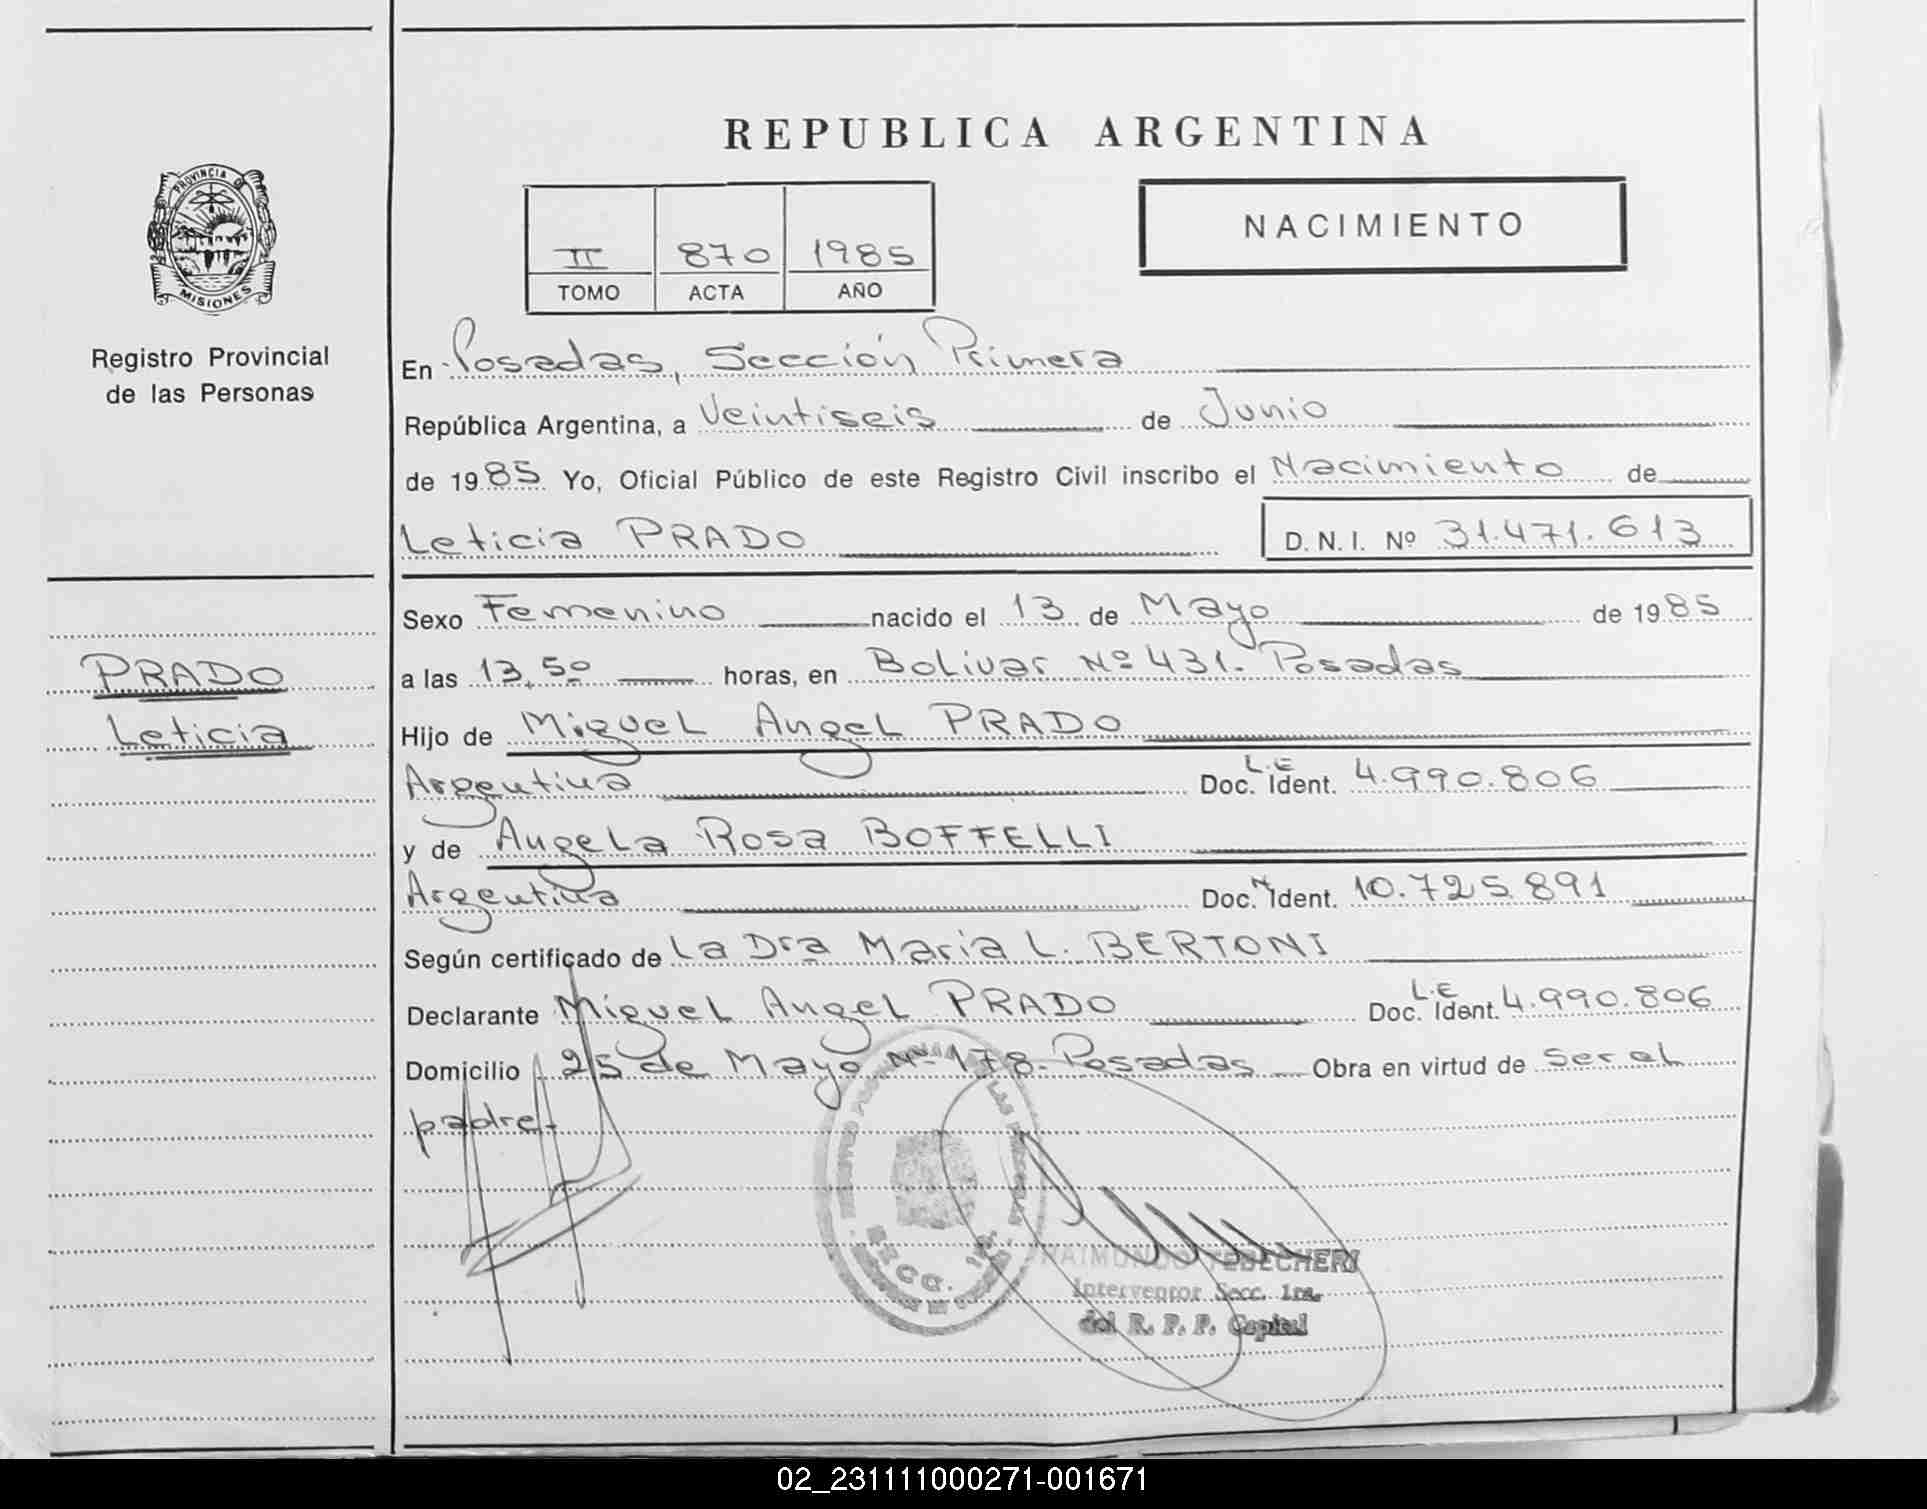 REPUBLICA ARGENTINA
PROVINCIA DE
MISIONES
Registro Provincial
de las Personas
NACIMIENTO
II 870 1985
TOMO ACTA AÑO
En Posadas, Sección Primera
República Argentina, a Veintiseis de Junio
de 1985 Yo, Oficial Público de este Registro Civil inscribo el Nacimiento de
Leticia PRADO D.N.I. Nº 31.471.613
PRADO
Leticia
Sexo Femenino nacido el 13 de Mayo de 1985
a las 13,50 horas, en Bolivar Nº 431. Posadas
Hijo de Miguel Angel PRADO
Argentina Doc. L.E Ident. 4.990.806
y de Angela Rosa BOFFELLI
Argentina Doc. N Ident. 10.725.891
Según certificado de La Dra Maria L. BERTONI
Declarante Miguel Angel PRADO Doc. L.E Ident. 4.990.806
Domicilio 25 de Mayo Nº 178. Posadas Obra en virtud de ser el
padre.
SECC. 1ra.
RAIMUNDO TEBECHERI
Interventor Secc. 1ra.
del R. P. P. Capital
02_231111000271-001671